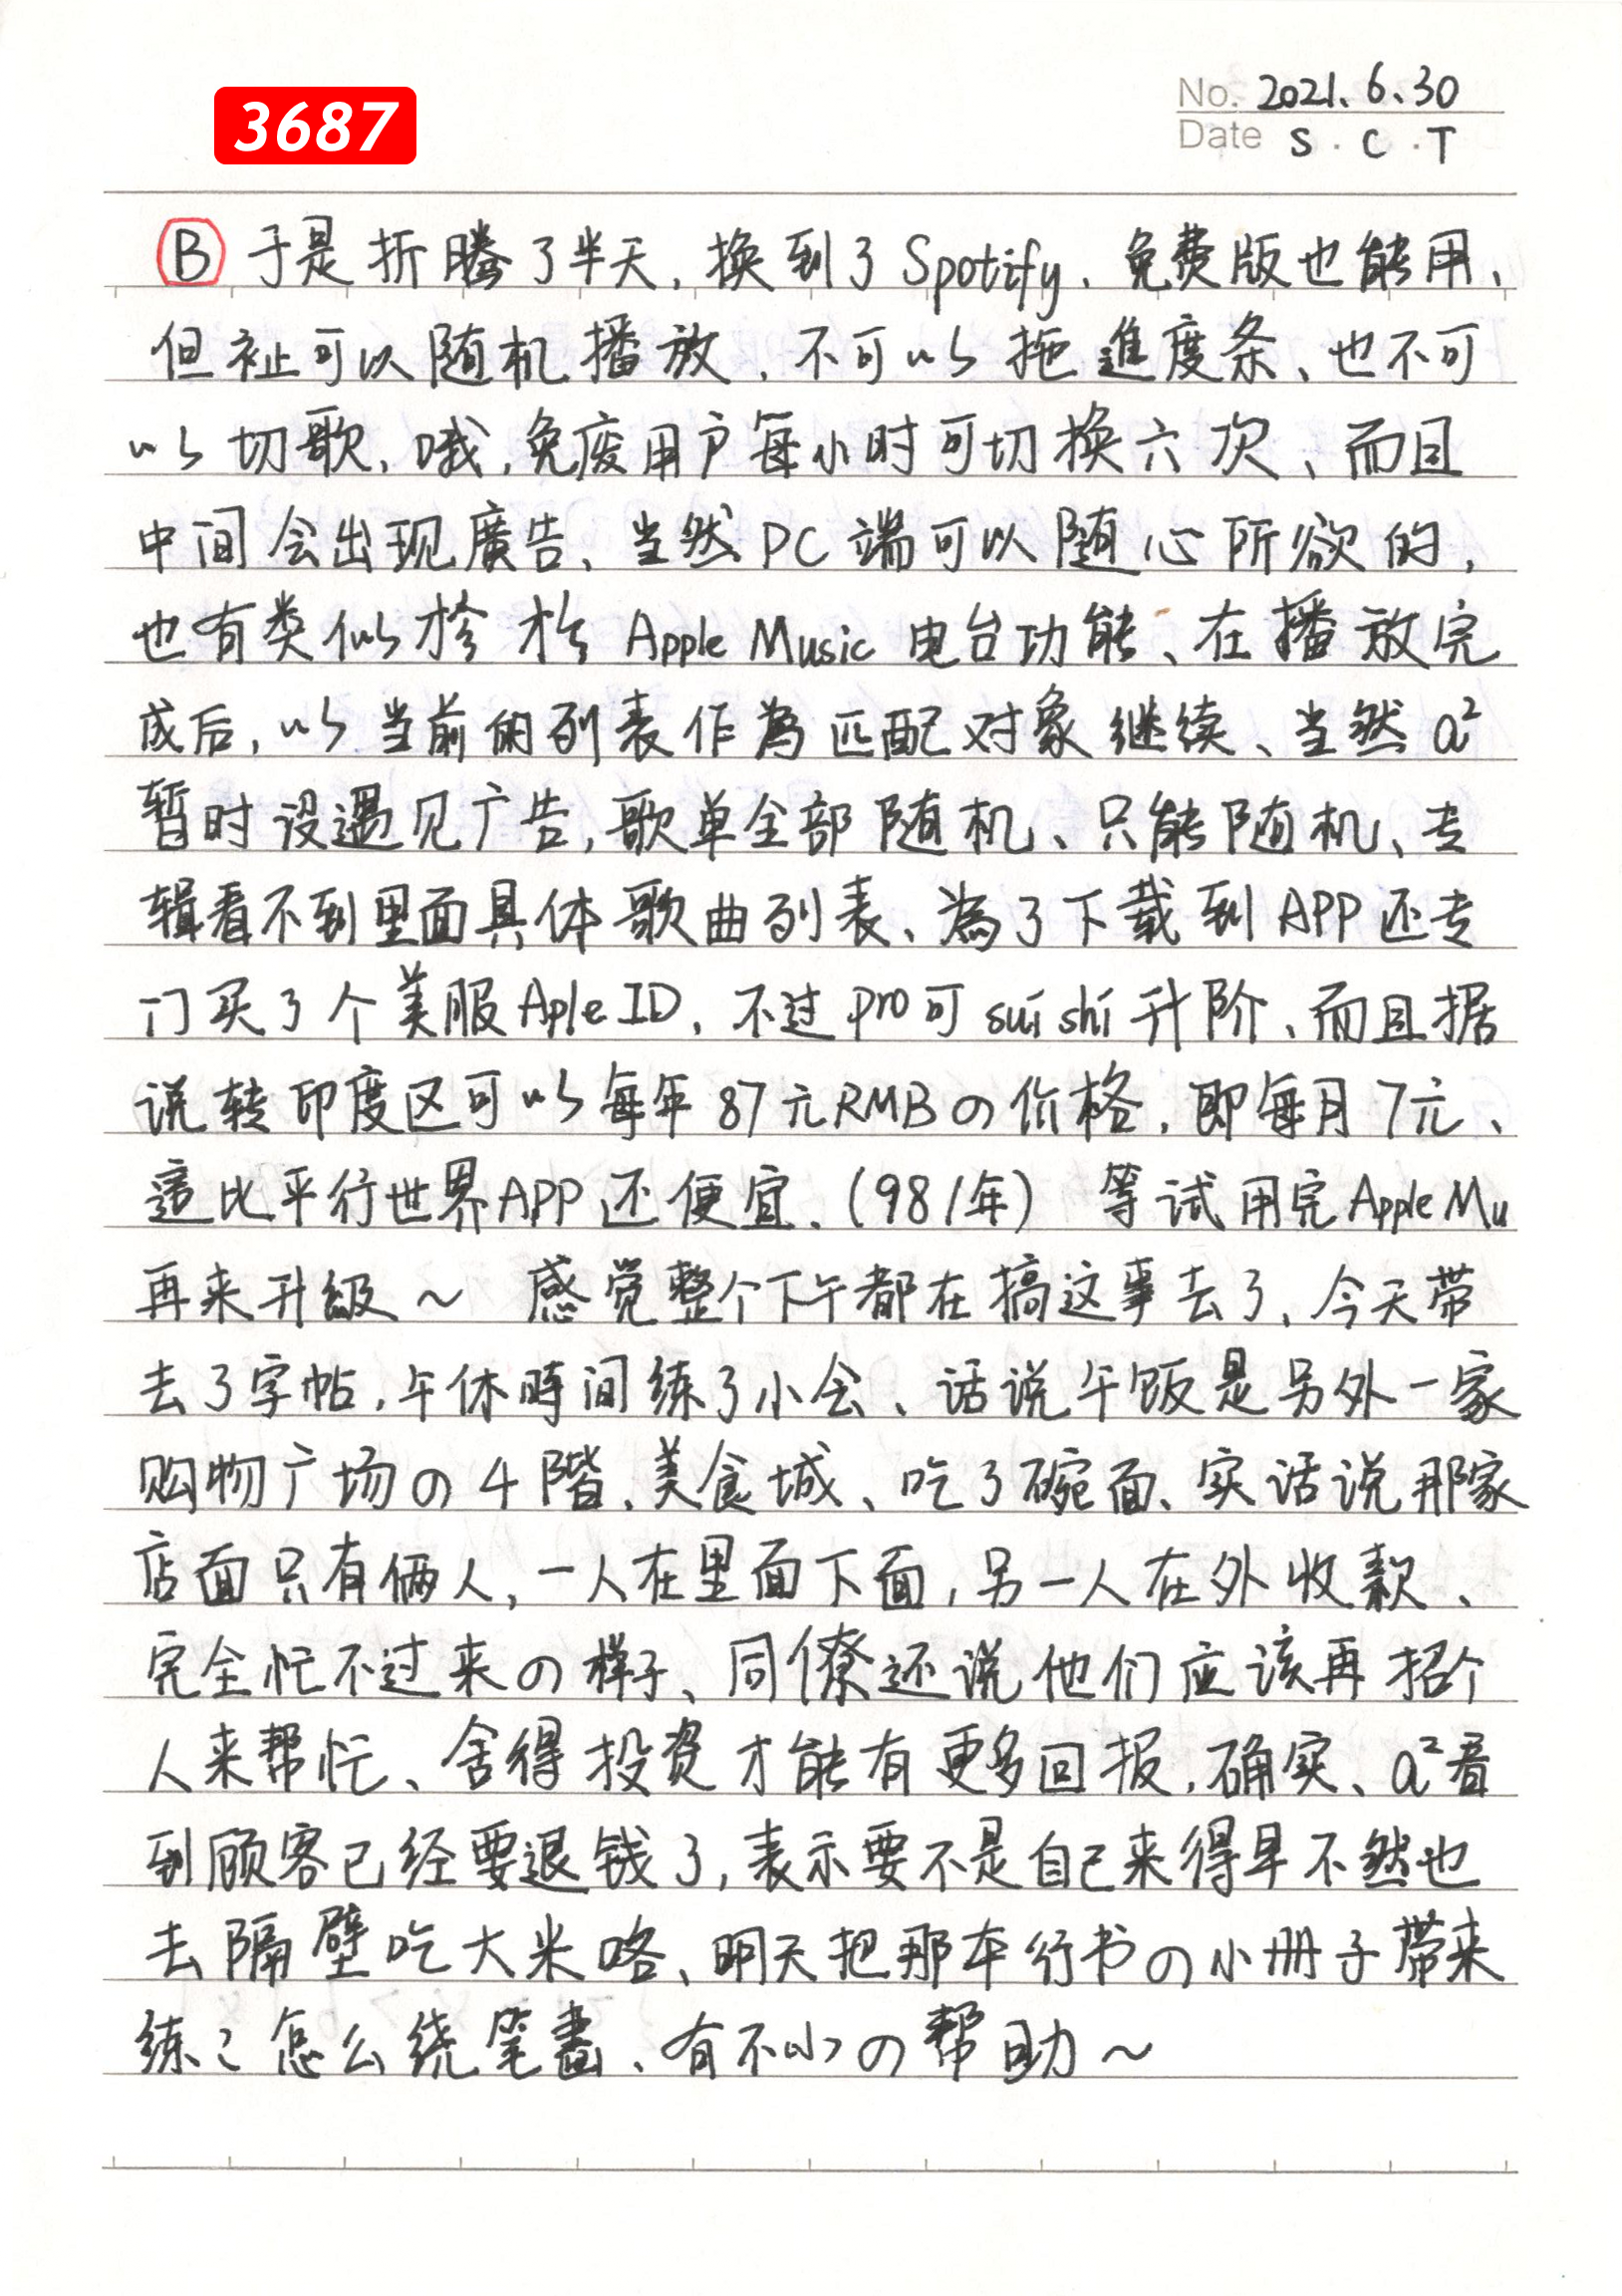 3687
No. 2021.6.30
Date S.C.T
B 于是折腾了半天,换到了Spotify、免费版也能用、
但祉可以随机播放、不可以拖進度条、也不可
以切歌、哦,免废用户每小时可切换六次、而且
中间会出现廣告、当然PC端可以随心所欲的,
也有类似於 Apple Music 电台功能、在播放完
成后,以当前的列表作為匹配对象继续、当然a²
暂时设遇见广告,歌单全部随机、只能随机、专
辑看不到里面具体歌曲列表、為了下载到APP还专
门买了个美服Aple ID、不过pro可suishi升阶、而且据
说转印度区可以每年87元RMBの价格,即每月7元、
這比平行世界APP还便宜、(98/年) 等试用完Apple Mu
再来升級~ 感觉整个下午都在搞这事去了、今天带
去了字帖,午休時间练了小会、话说午饭是另外一家
购物广场の4階、美食城、吃了碗面、实话说那家
店面只有俩人,一人在里面下面,另一人在外收款、
完全忙不过来の样子、同僚还说他们应该再招个
人来帮忙、舍得投资才能有更多回报,确实、a²看
到顾客已经要退钱了,表示要不是自己来得早不然也
去隔壁吃大米咯、明天把那本行书の小册子带来
练ミ怎么绕笔畫、有不小の帮助~